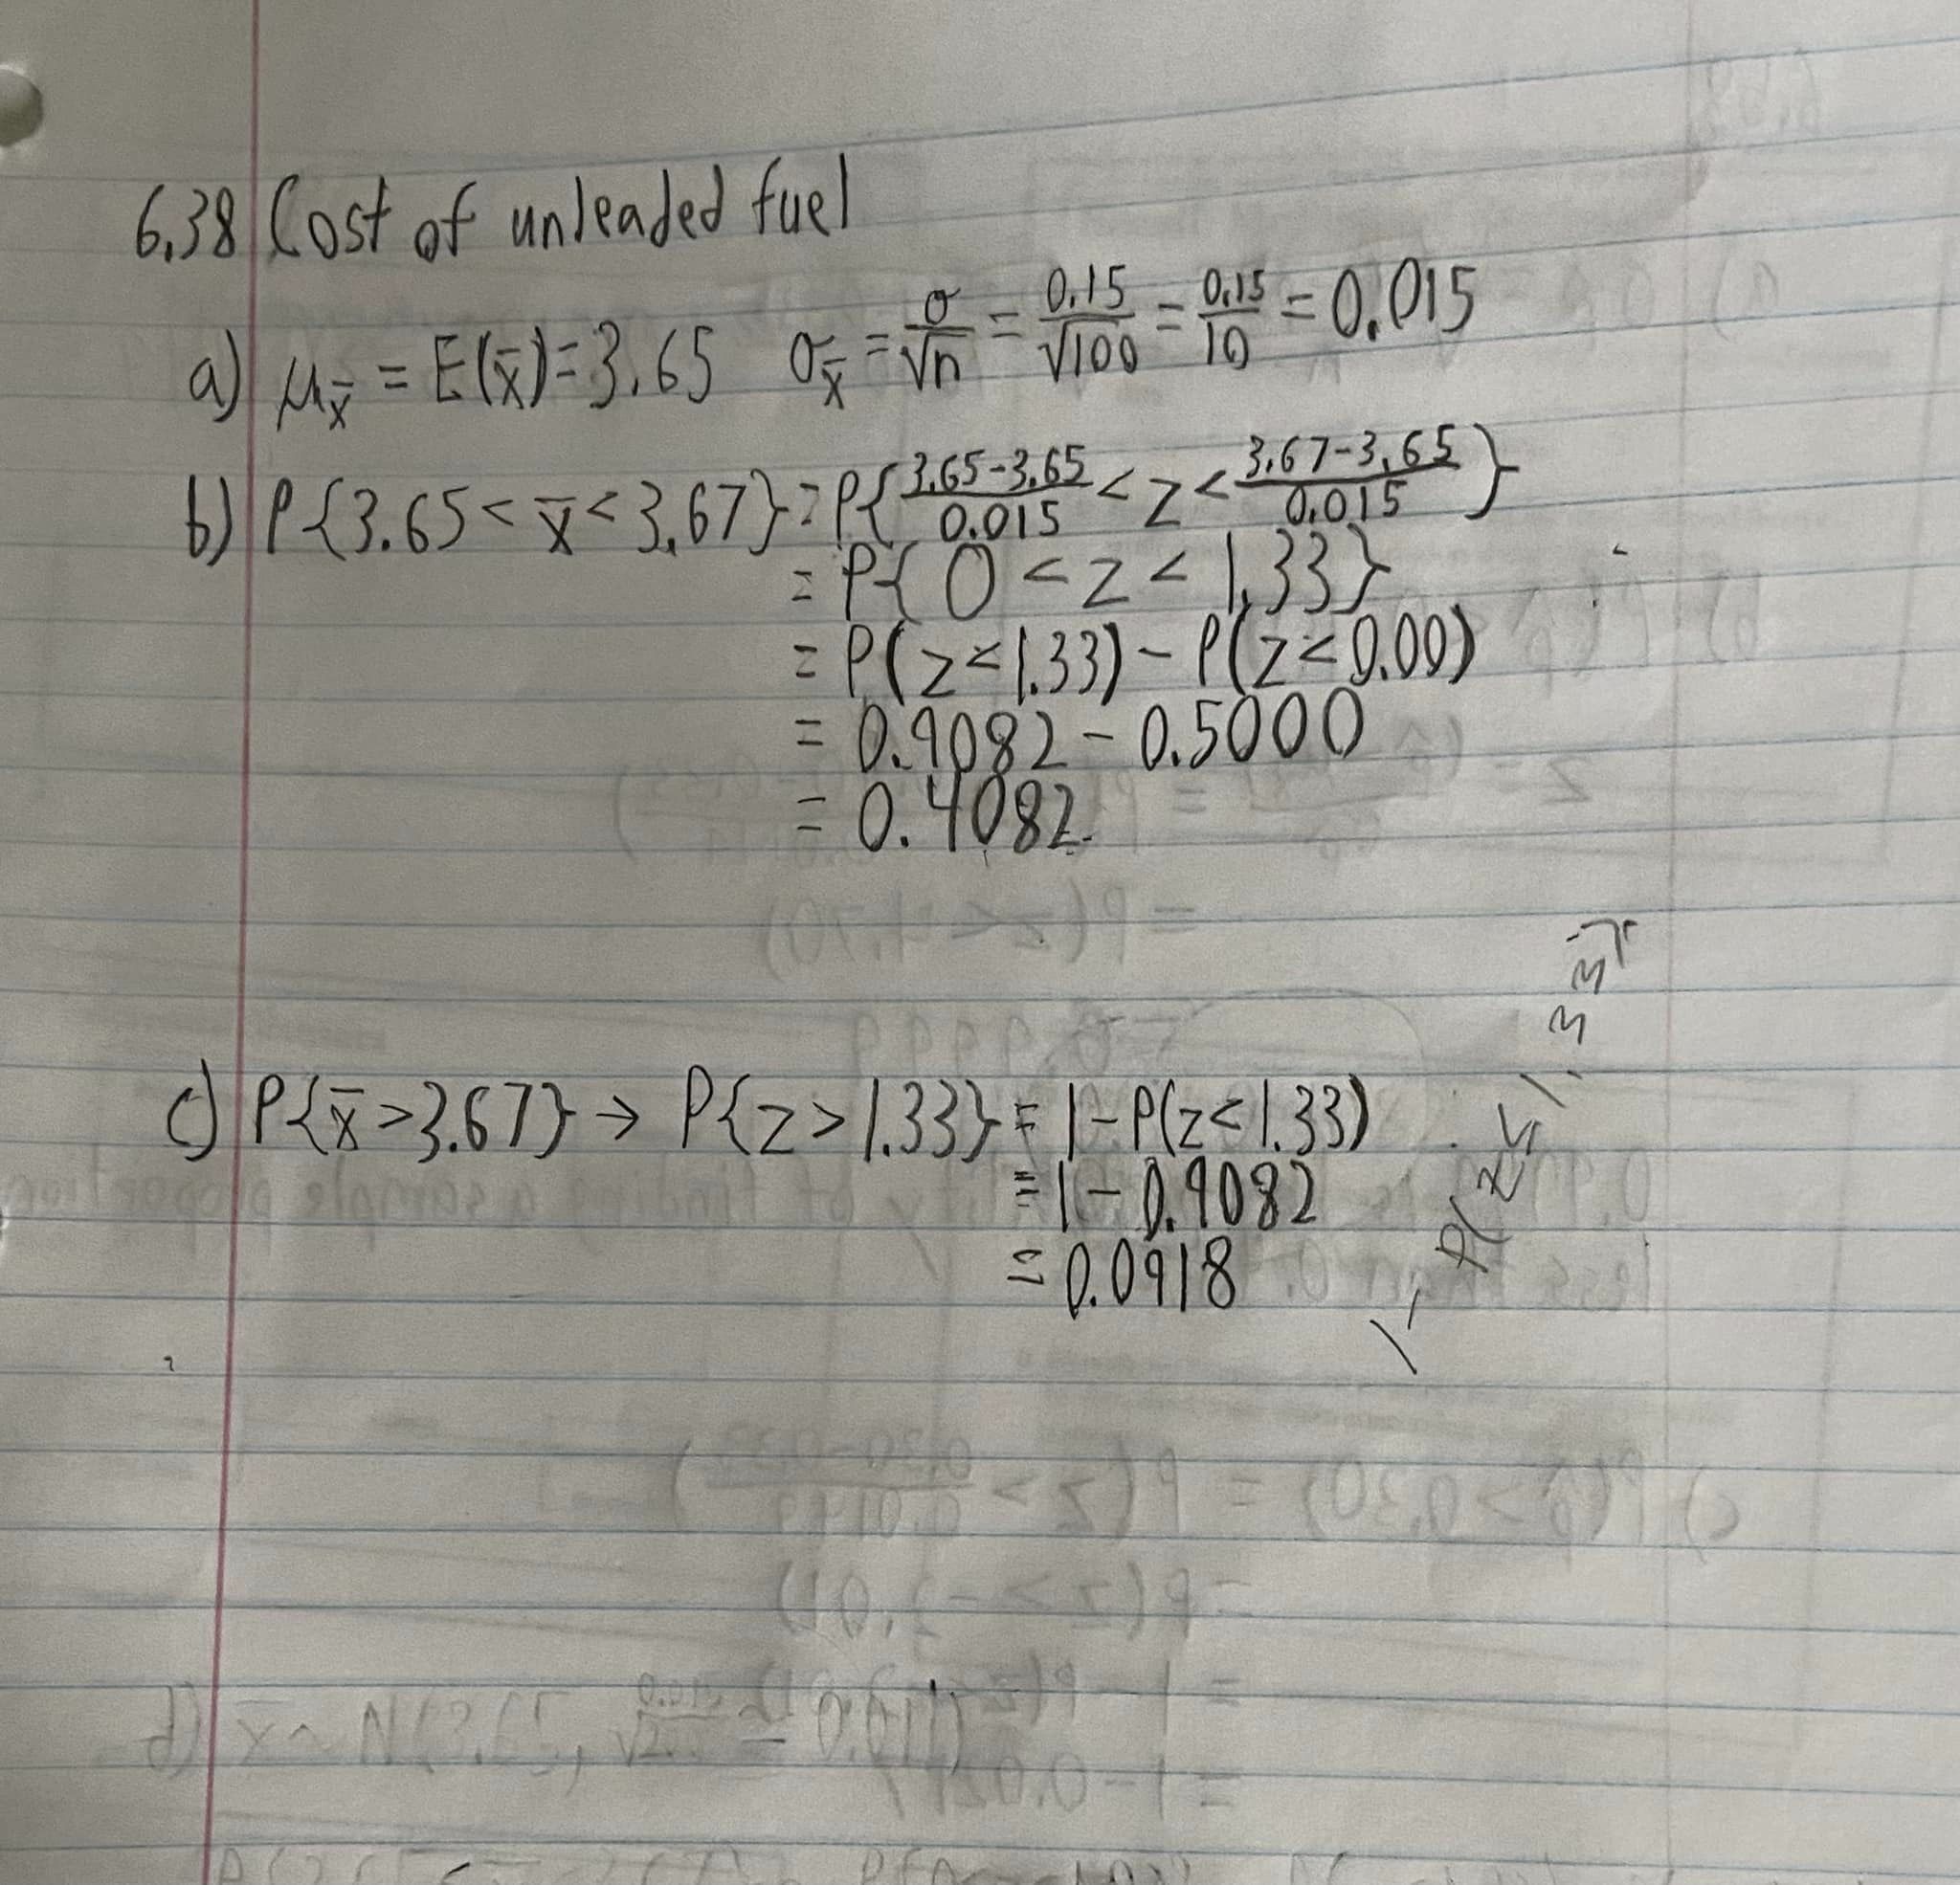 6.38 Cost of unleaded fuel
a) μx̄ = E(x̄) = 3.65 σx̄ = σ/√n = 0.15/√100 = 0.15/10 = 0.015
b) P{3.65 < x̄ < 3.67} = P{(3.65-3.65)/0.015 < z < (3.67-3.65)/0.015}
= P{0 < z < 1.33}
= P(z<1.33) - P(z<0.00)
= 0.9082 - 0.5000
= 0.4082
c) P{x̄ > 3.67} → P{z > 1.33} = 1 - P(z < 1.33)
= 1 - 0.9082
= 0.0918
1 - P(z≤1.33)